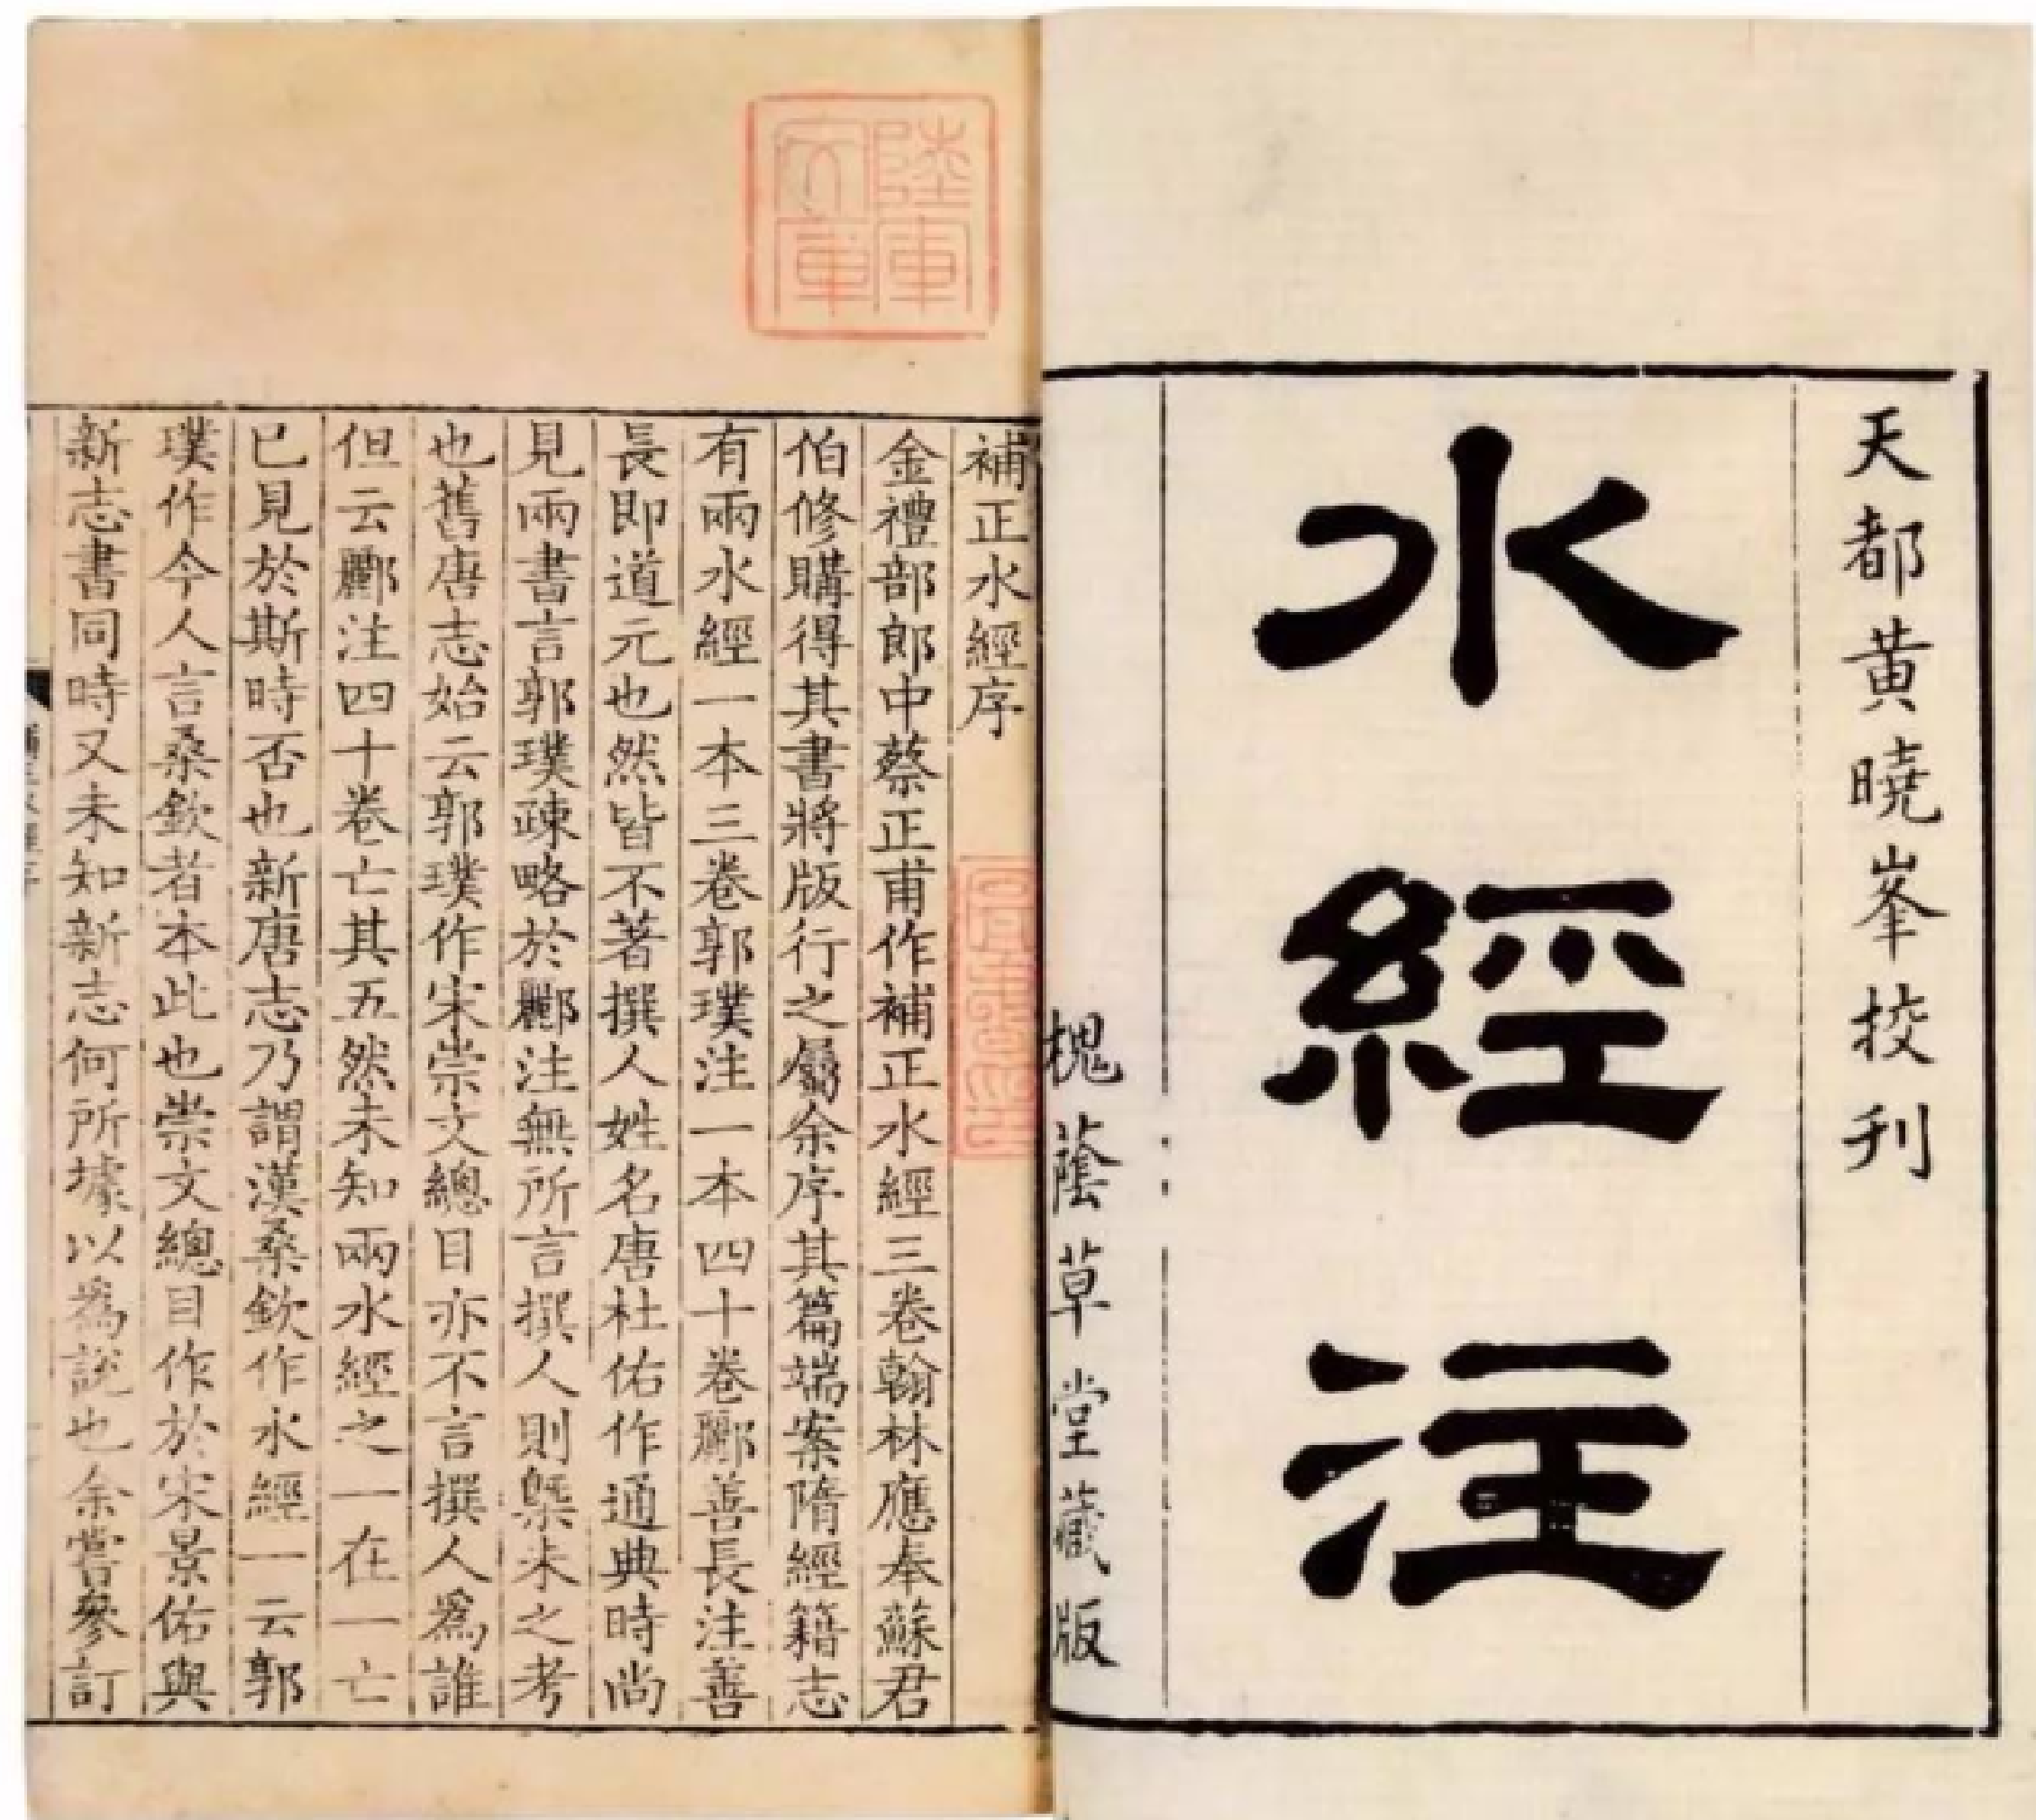 天都黃曉峯挍刋
水經注
槐蔭草堂藏版
陸軍文庫
補正水經序
金禮部郎中蔡正甫作補正水經三卷翰林應奉蘇君
伯修購得其書將版行之屬余序其篇端案隋經籍志
有兩水經一本三卷郭璞注一本四十卷酈善長注善
長即道元也然皆不著撰人姓名唐杜佑作通典時尚
見兩書言郭璞疎略於酈注無所言撰人則槩未之考
也舊唐志始云郭璞作宋崇文總目亦不言撰人爲誰
但云酈注四十卷亡其五然未知兩水經之一在一亡
已見於斯時否也新唐志乃謂漢桑欽作水經一云郭
璞作今人言桑欽者本此也崇文總目作於宋景佑與
新志書同時又未知新志何所據以爲說也余嘗參訂